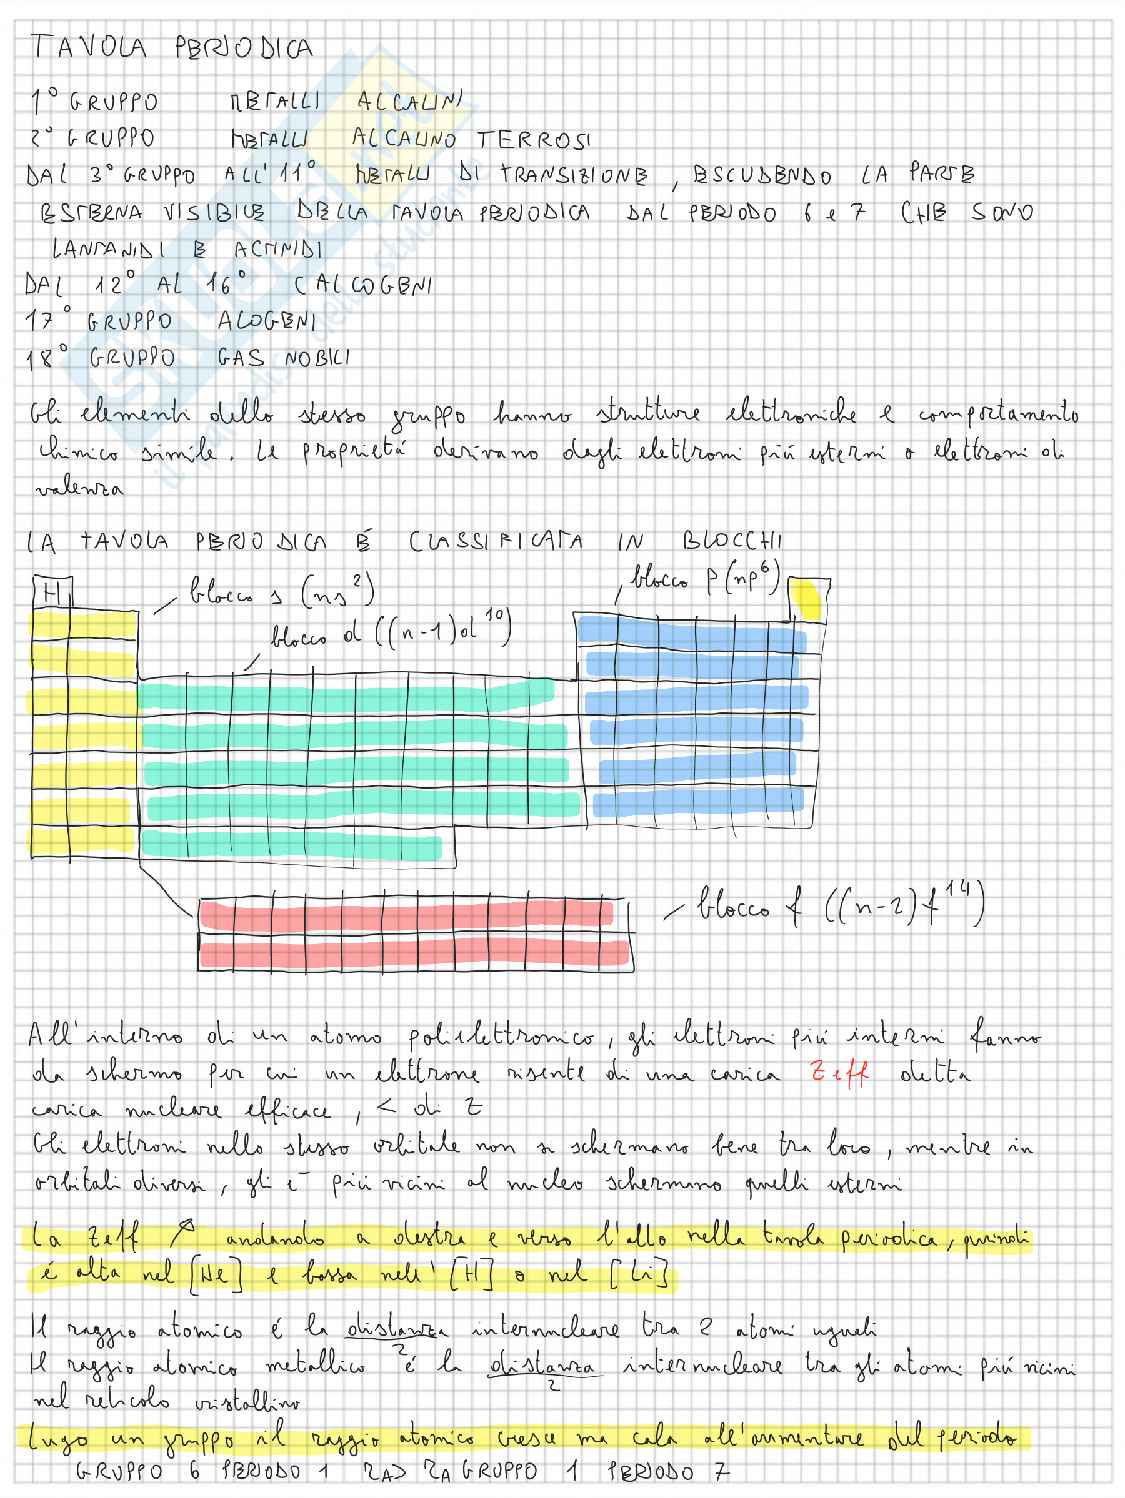 TAVOLA PERIODICA
1° GRUPPO METALLI ALCALINI
2° GRUPPO METALLI ALCALINO TERROSI
DAL 3° GRUPPO ALL'11° METALLI DI TRANSIZIONE, ESCUDENDO LA PARTE
ESTERNA VISIBILE DELLA TAVOLA PERIODICA DAL PERIODO 6 e 7 CHE SONO
LANTANIDI E ACTINIDI
DAL 12° AL 16° CALCOGENI
17° GRUPPO ALOGENI
18° GRUPPO GAS NOBILI
Gli elementi dello stesso gruppo hanno strutture elettroniche e comportamento
chimico simile. Le proprietá derivano dagli elettroni piú esterni o elettroni di
valenza
LA TAVOLA PERIODICA É CLASSIFICATA IN BLOCCHI
blocco p (np⁶)
H
blocco s (ns²)
blocco d ((n-1)d¹⁰)
blocco f ((n-2)f¹⁴)
All'interno di un atomo polielettronico, gli elettroni piú interni fanno
da schermo per cui un elettrone risente di una carica Zeff detta
carica nucleare efficace, < di Z
Gli elettroni nello stesso orbitale non si schermano bene tra loro, mentre in
orbitali diversi, gli e⁻ piú vicini al nucleo schermano quelli esterni
La Zeff ↗ andando a destra e verso l'alto nella tavola periodica, quindi
é alta nel [Ne] e bassa nell'[H] o nel [Li]
Il raggio atomico é la distanza internucleare tra 2 atomi uguali
2
Il raggio atomico metallico é la distanza internucleare tra gli atomi piú vicini
2
nel reticolo cristallino
Lugo un gruppo il raggio atomico cresce ma cala all'aumentare del periodo
GRUPPO 6 PERIODO 1 GRUPPO 1 PERIODO 7